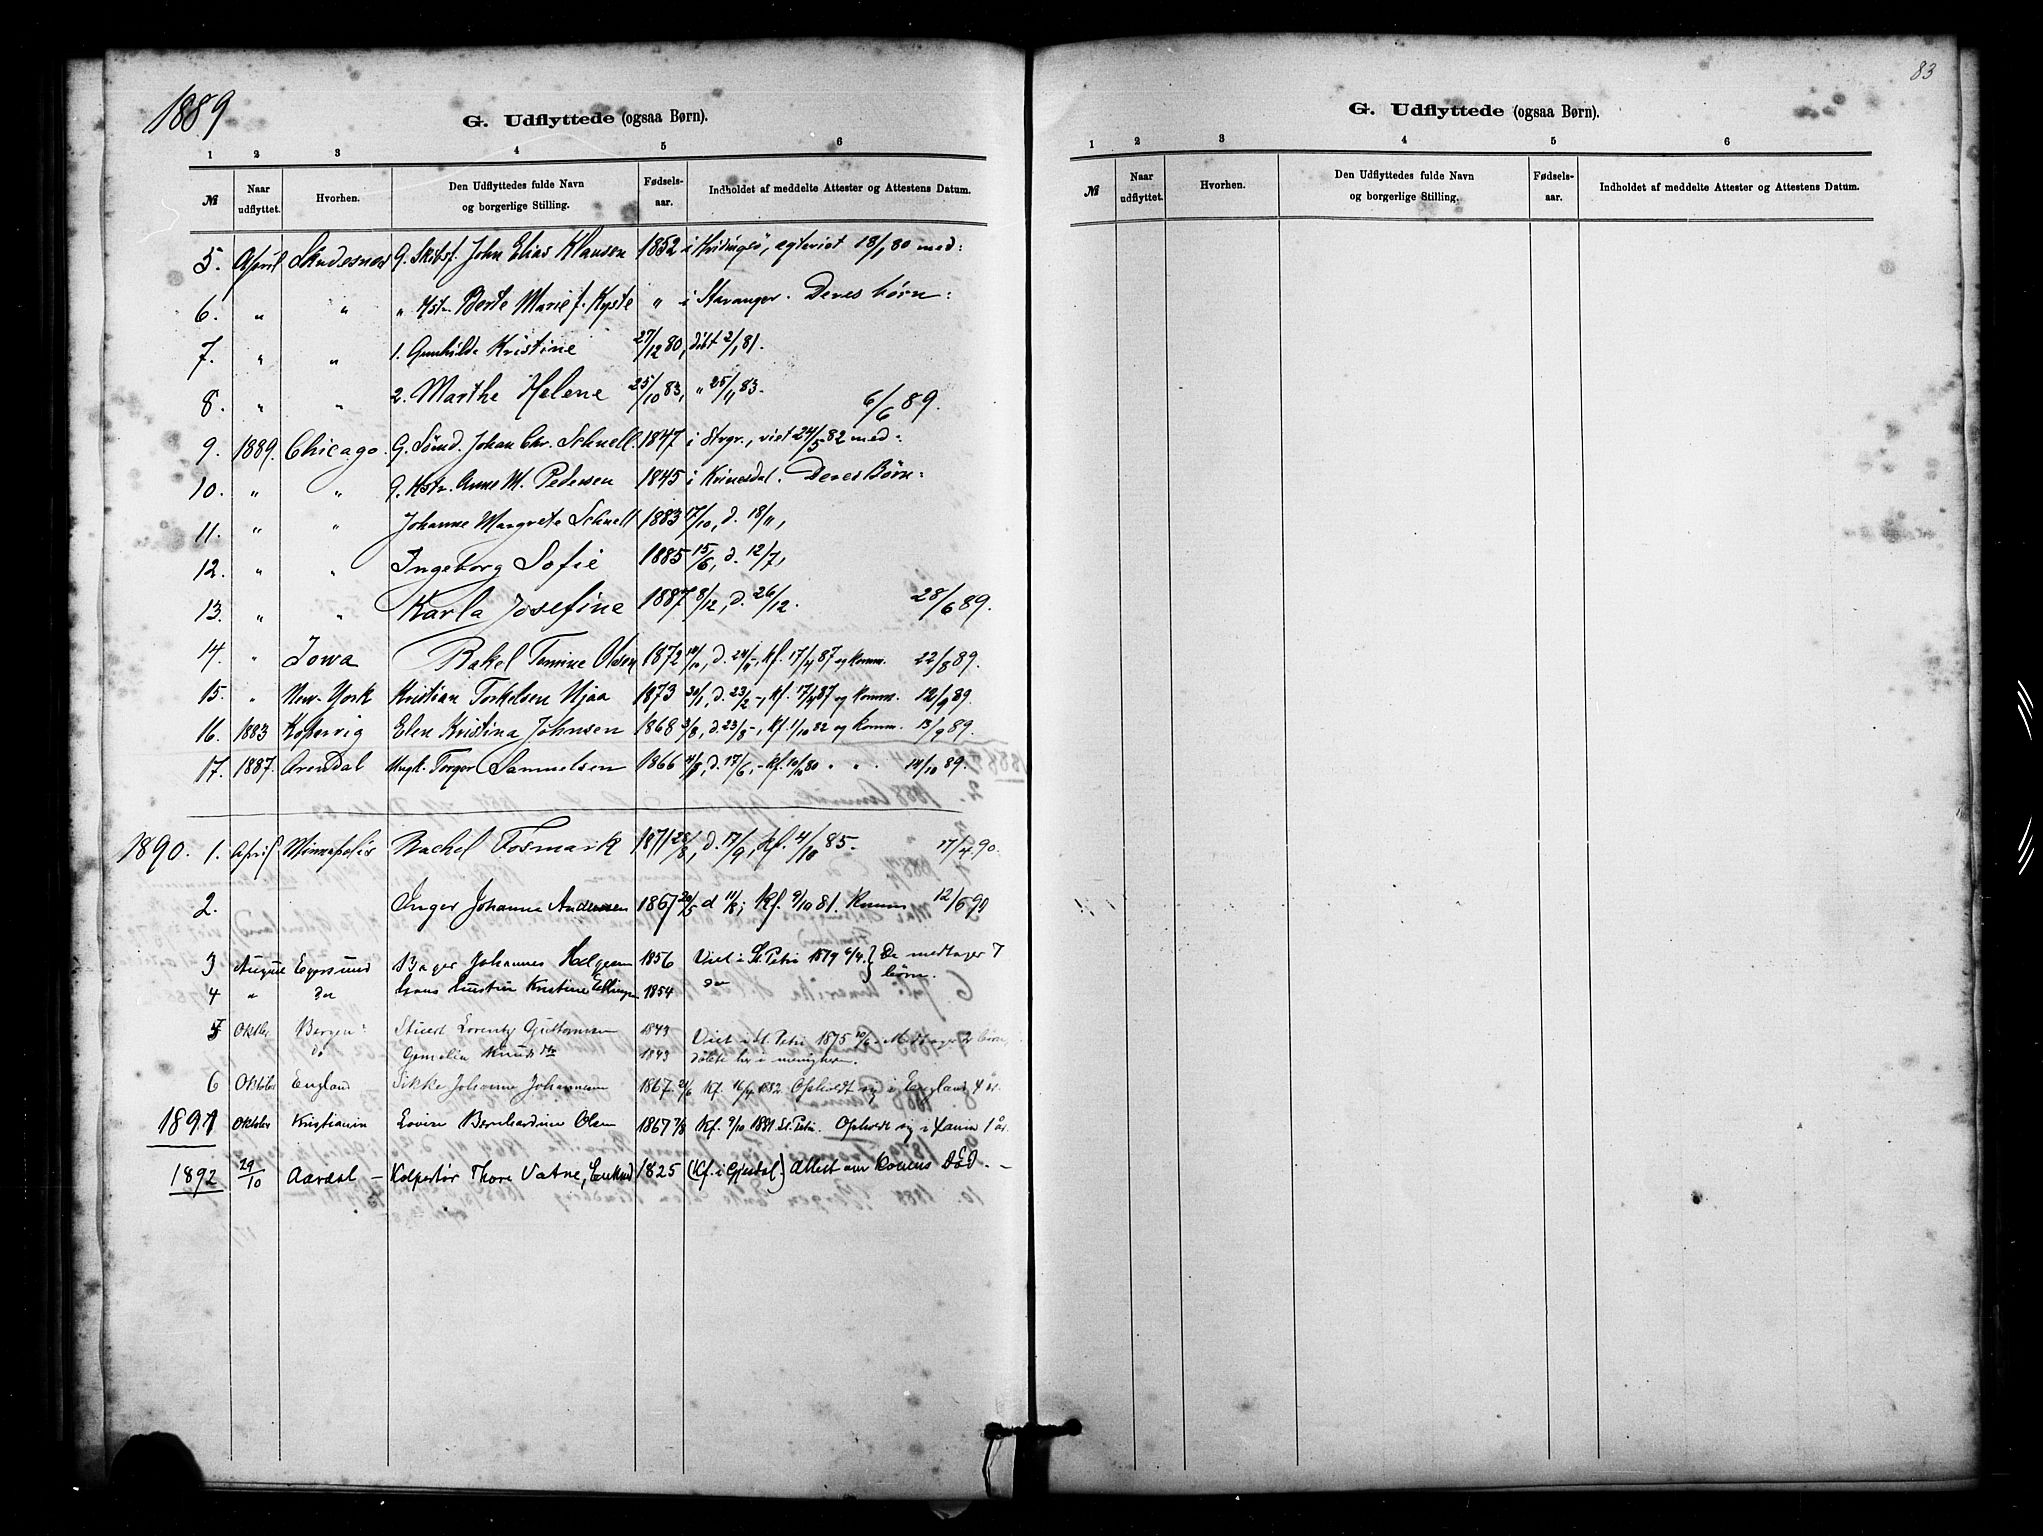 1889
G. Udflyttede (ogsaa Børn).
1 2 3 4 5 6
№ Naar udflyttet. Hvorhen. Den Udflyttedes fulde Navn og borgerlige Stilling. Fødsels-aar. Indholdet af meddelte Attester og Attestens Datum.
5. April Skudesnes G. Skibsf. John Elias Klausen 1852 i Kvidingsö, egteviet 18/1 80 med:
6. " " " Hstr. Berte Marie f. Kyste " i Stavanger. Deres børn:
7. " " 1. Gunhilda Kristine 27/12 80, döbt 2/1 81.
8. " " 2. Marthe Helene 25/10 83, " 25/11 83. 6/6 89.
9. 1889. Chicago. G. Sömd. Johan Chr. Schnell. 1847 i Stvgr., viet 24/5 82 med:
10. " " G. Hstr. Anne M. Pedersen 1845 i Kvinesdal. Deres Børn:
11. " " Johanne Margrete Schnell 1883 17/10, d. 18/11,
12. " " Ingeborg Sofie 1885 15/6, d. 12/7,
13. " " Karla Josefine 1887 8/12, d. 26/12. 28/6 89.
14. " Iowa Rakel Tomine Olsen 1872 14/10, d. 24/11 -, kf. 17/4 87 og komm. 22/8 89.
15. " New-York Kristian Torkelsen Njaa 1873 20/1, d. 23/2 -, kf. 17/4 87 og komm. 12/9 89.
16. 1883 Kopervig Elen Kristina Johnsen 1868 3/8, d. 23/8 -, kf. 1/10 82 og komm. 13/9 89.
17. 1887. Arendal Ungk. Torger Samuelsen 1866 d. 17/6, - kf. 10/10 80 " " 14/10 89.
1890. 1. April Minneapolis Rachel Fosmark 1871 28/8, d. 17/9, kf. 4/10 85. 17/4 90.
2. Inger Johanne Andersen 1867 20/5 d 11/8; Kf. 9/10 81. Komm 12/6 90
3 August Egersund Bager Johannes Helgesen 1856 Viet i St. Petri 1879 6/4. } De medtager 7 börn.
4 " do Hans Hustru Kristine Ellingsen 1854 do
5 Oktbr Bergen Stuert Lorentz Guttormsen 1843 Viet i St. Petri 1875 10/6. Medtager 2 börn,
do Knuds Dtr 1843 döbte her i menigheden.
6 Oktober England Sikke Johanne Johannesen 1867 24/6 Kf. 16/4 1882 Opholdt sig i England 4 år.
1891 Oktober Kristiania Lovise Bernhardine Olsen 1867 7/8 Kf. 9/10 1881 St. Petri. Opholdt sig i Xania 1 år.
1892 29/10 Aardal – Kolportør Thore Vatne, Enkmd 1825 (Kf. i Gjesdal.) Attest om Konens Död. –
83
G. Udflyttede (ogsaa Børn).
1 2 3 4 5 6
№ Naar udflyttet. Hvorhen. Den Udflyttedes fulde Navn og borgerlige Stilling. Fødsels-aar. Indholdet af meddelte Attester og Attestens Datum.